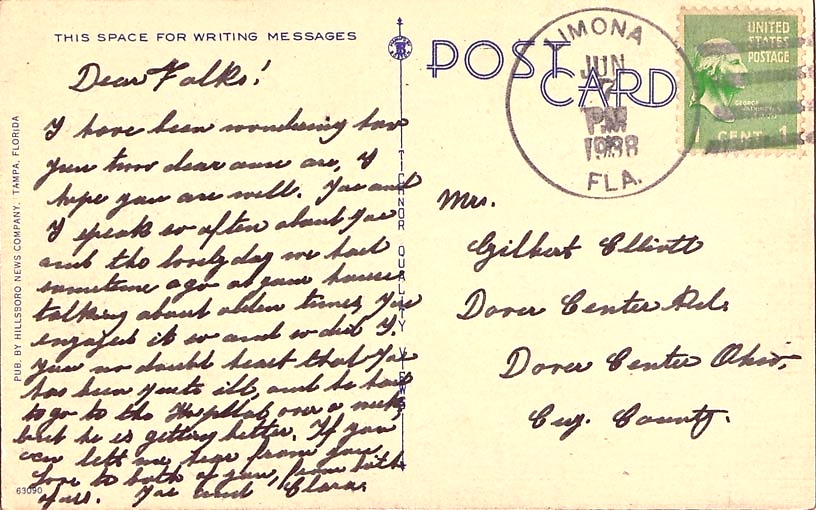 THIS SPACE FOR WRITING MESSAGES
Dear Folks!
I have been wondering how
you two dear ones are, I
hope you are well. Joe and
I speak so often about you
and the lovely day we had
sometime ago at your house
talking about olden times, Joe
enjoyed it so and so did I.
You no doubt heard that Joe
has been quite ill, and he had
to go to the Hospital, over a week,
but he is getting better. If you
can let me hear from you
Love to both of you, from both
of us. Joe and Clara.
PUB. BY HILLSBORO NEWS COMPANY, TAMPA, FLORIDA
63090
TICHNOR QUALITY VIEWS
POST
CARD
LIMONA
JUN
7
PM
1938
FLA.
UNITED
STATES
POSTAGE
GEORGE
WASHINGTON
CENT 1
Mrs.
Gilbert Elliott
Dover Center Rd.
Dover Center Ohio,
Cuy. County.